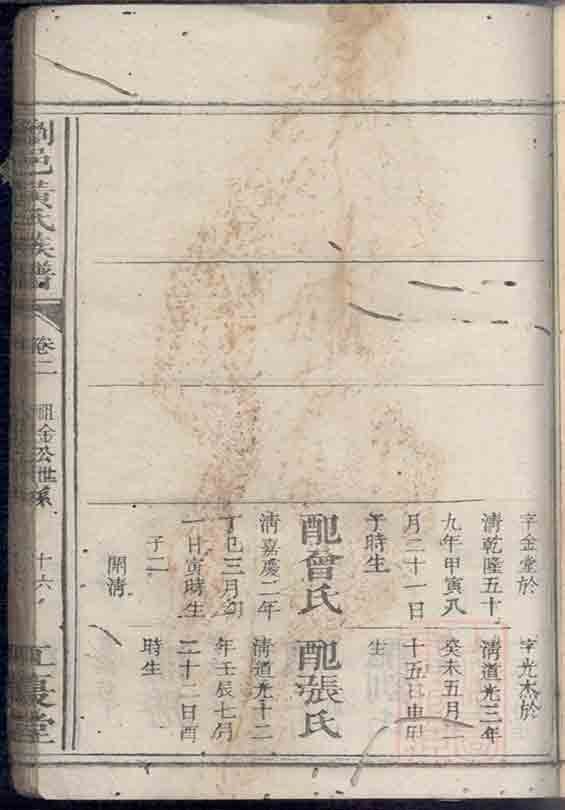 字金堂於
清乾隆五十
九年甲寅八
月二十一日
子時生
配曾氏
清嘉慶二年
丁巳三月初
一日寅時生
子二
開清
字光杰於
清道光三年
癸未五月二
十五日申時
生
配張氏
清道光十二
年壬辰七月
二十二日酉
時生
瀏邑黃氏族譜
卷二
祖金公世系
十六
江夏堂